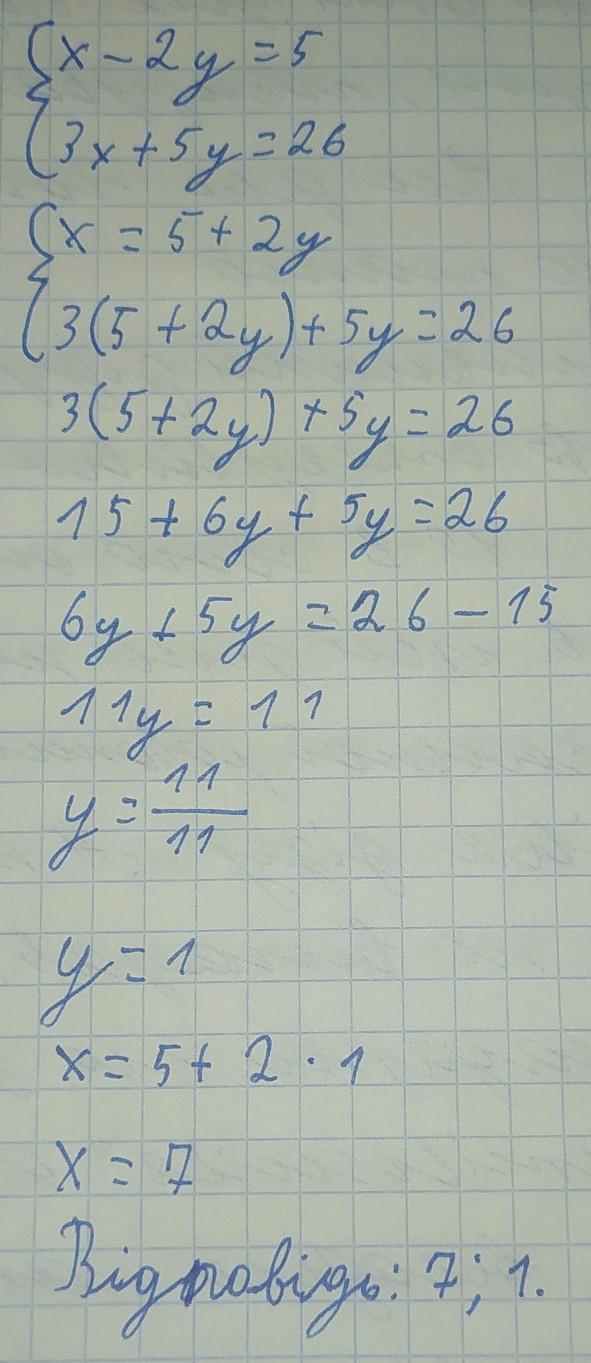 { x - 2y = 5
{ 3x + 5y = 26
{ x = 5 + 2y
{ 3(5 + 2y) + 5y = 26
3(5 + 2y) + 5y = 26
15 + 6y + 5y = 26
6y + 5y = 26 - 15
11y = 11
y = 11/11
y = 1
x = 5 + 2 · 1
x = 7
Відповідь: 7; 1.